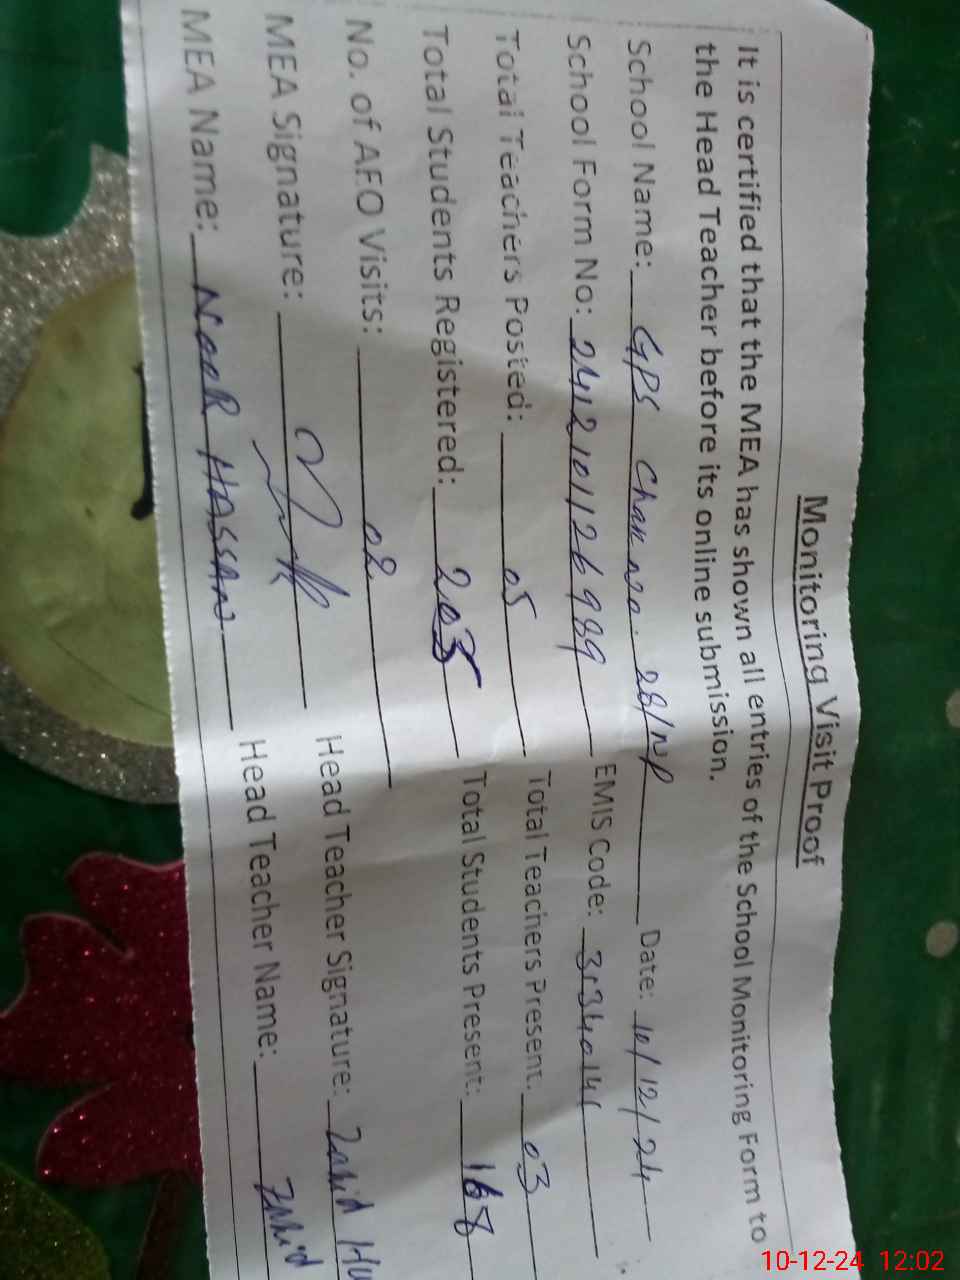 Monitoring Visit Proof
It is certified that the MEA has shown all entries of the School Monitoring Form to
the Head Teacher before its online submission.
School Name: GPS Chak no. 28/NP Date: 10/12/24
School Form No: 2412101126989 EMIS Code: 31340141
Total Teachers Posted: 05 Total Teachers Present: 03
Total Students Registered: 205 Total Students Present: 168
No. of AEO Visits: 02
MEA Signature: Head Teacher Signature: Zahid Hu
MEA Name: NOOR HASSAN Head Teacher Name: Zahid
10-12-24 12:02